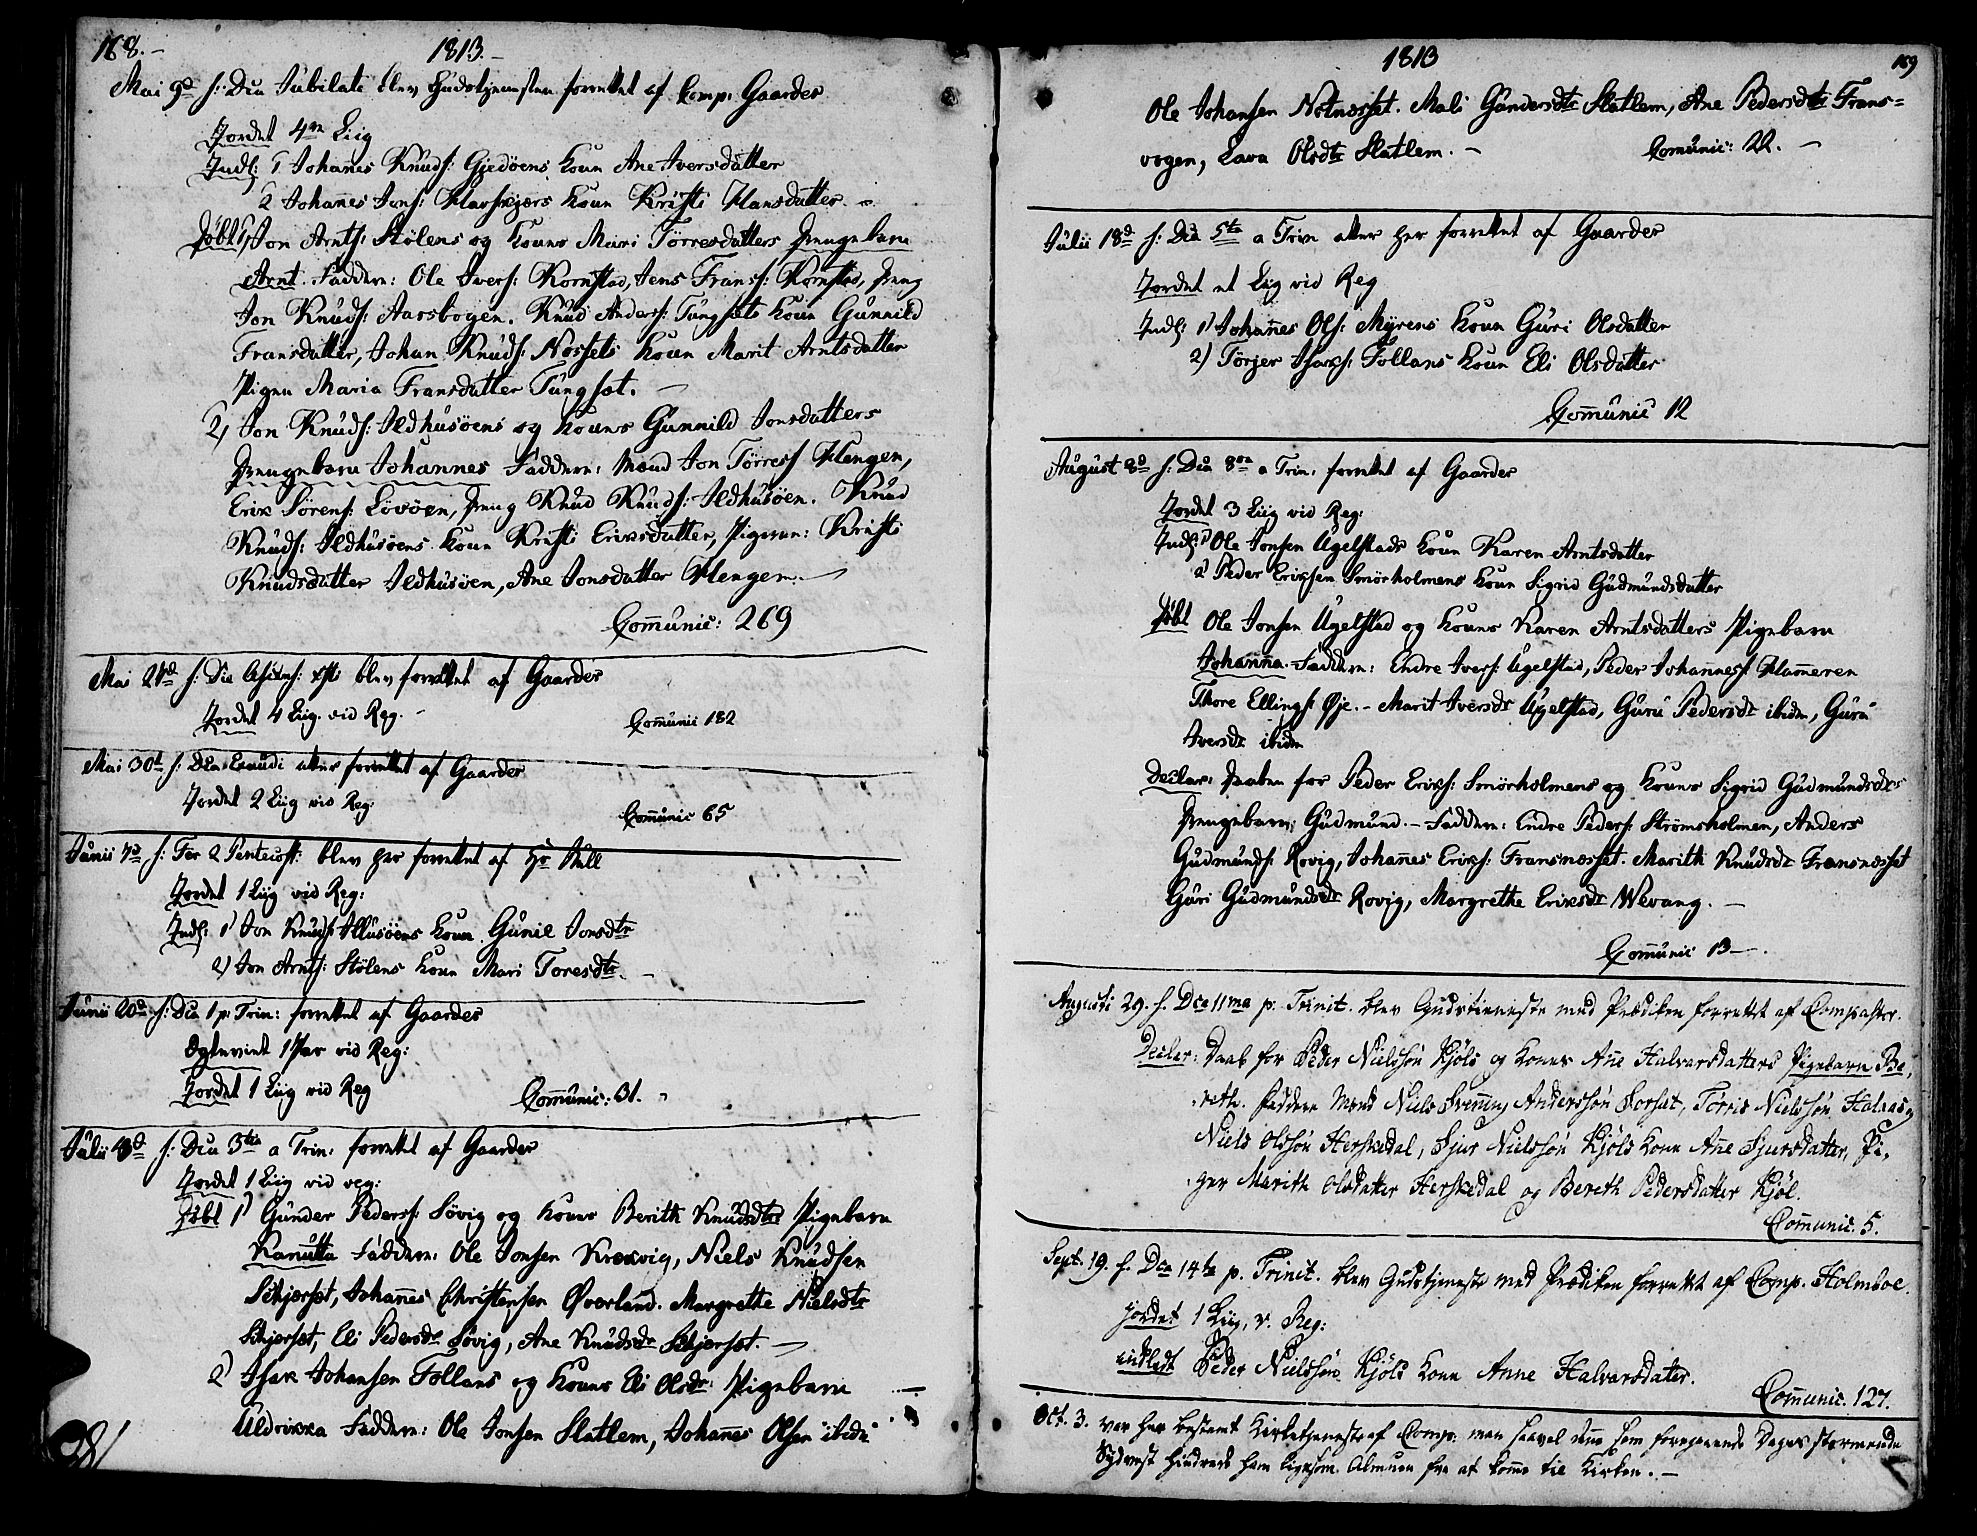 168.-
1813.-
Mai 9de s: Dca Jubilate blev Gudstjenesten forrettet af Comp: Gaarder
Jordet 4re Liig
Indl: 1 Johanes Knuds: Gjedöens Kone Ane Iversdatter
2 Johanes Jons: Havskjærs Kone Kristi Hansdatter.-
Döbt 1, Jon Arnts: Stölens og Kones Mari Törresdatters Drengebarn
Arnt. Faddere: Ole Ivers: Kornstad, Jens Frans: Kornstad, Dreng
Jon Knuds: Aarsbogen. Knud Anders: Tungsets Kone Gunnild
Fransdatter, Johan Knuds: Næssets Kone Marit Arntsdatter
Pigen Maria Fransdatter Tungset.-
2, Jon Knuds: Ildhusöens og Kones Gunnild Jonsdatters
Drengebarn Johannes Faddere: Mænd Jon Törress Hengen,
Erik Sörens: Lövöen, Dreng Knud Knuds: Ildhusöen. Knud
Knuds: Ildhusöens Kone Kristi Eriksdatter, Pigerne: Kristi
Knudsdatter Ildhusöen, Ane Jonsdatter Hengen.-
Comunic: 269
Mai 27de s: Die Ascens: xsti blev forrettet af Gaarder
Jordet 4 Liig vid Reg.-
Comunic 182
Mai 30te s: Dca Exaudi atter forrettet af Gaarder
Jordet 2 Liig vid Reg:
Comunic 65
Junii 7de s: Fer 2 Pentecost: blev her forrettet af Hr Stub
Jordet 1 Liig vid Reg:
Indl: 1 Jon Knuds Illusöens Kone Gunil Jonsdtr
2) Jon Arnts: Stölens Kone Mari Toresdtr.-
Junii 20de s: Dca 1 p: Trin: forrettet af Gaarder
Ægteviet 1 Par vid Reg:
Jordet 1 Liig vid Reg
Comunic: 31.
Julii 4de s: Dca 3tia a Trin: forrettet af Gaarder
Jordet 1 Liig vid reg:
Döbt 1) Gunder Pederss: Sövig og Kones Berith Knudsdtrs Pigebarn
Kanutta Faddere: Ole Jonsen Krækvig, Niels Knudsen
Skjerset, Johanes Christensen Överland. Margrethe Nielsdtr
Skjerset, Eli Pedersdr Sövig, Ane Knudsdr Skjerset.-
2) Isak Johansen Follans og Kones Eli Olsdr: Pigebarn
Uldrikka Faddere: Ole Jonsen Slatlem, Johanes Olsen ibidem
1813
169
Ole Johansen Notnæsset. Mali Gundersdtr Slatlem, Ane Pedersdtr Frans-
vogen, Lava Olsdtr Slatlem.-
Comunic: 22.-
Julii 18de s: Dca 5ta a Trin atter her forrettet af Gaarder
Jordet et Liig vid Reg
Indl: 1) Johanes Ols: Myrens Kone Guri Olsdatter
2) Törjer Isaks: Follans Kone Eli Olsdatter
Comunic 12
August 8de s: Dca 8va a Trin: forrettet af Gaarder
Jordet 3 Liig vid Reg:
Indl: 1) Ole Jonsen Ugelstads Kone Karen Arntsdatter
2 Peder Eriksen Smörholmens Kone Sigrid Gudmundsdatter
Döbt Ole Jonsen Ugelstad og Kones Karen Arntsdatters Pigebarn
Johanna. Faddere: Endre Ivers: Ugelstad, Peder Johanness: Hameren
Thore Ellings: Øje.- Marit Iversdr Ugelstad, Guru Pedersdr ibidem, Guru
Iversdr ibidem
Declar: Daaben for Peder Eriks: Smörholmens og Kones Sigrid Gudmundsdrs
Drengebarn: Gudmund.- Faddere: Endre Peders: Strömsholmen, Anders
Gudmunds: Rovig, Johanes Eriks: Fransnæsset. Marith Knudsdr Fransnæsset
Guri Gudmundsdr Rovig, Margrethe Eriksdr Wevang.-
Comunic 13-
Augusti 29. s. Dca 11ma p. Trinit. blev Gudstieneste med Prædiken forrettet af Compastor.
Declar: Daab for Peder Nielssön Kjöls og Kones Ane Halvarsdatters Pigebarn Be,
reth. Faddere Mænd Niels Svening Anderssön Sorset, Törris Nielssön Halaas,
Niels Olssön Herskedal, Sjur Nielssön Kjöls Kone Ane Sjursdatter, Pi,
ger Marith Olsdatter Herskedal og Bereth Pedersdatter Kjöl.
Comunic. 5.
Sept. 19. s. Dca 14ta p. Trinit. blev Gudstjeneste med Prædiken forrettet af Comp. Holmboe.
Jordet 1 Liig, v. Reg:
indledt Peder Nielssöns Kjöls Kone Anne Halvarsdater.
Comunic. 127.
Oct. 3. var her bestemt Kirketjeneste af Comp: men saavel dene som foregaaende Dages stormende
Sydvest hindrede ham ligesom Almuen fra at kome til Kirken.-